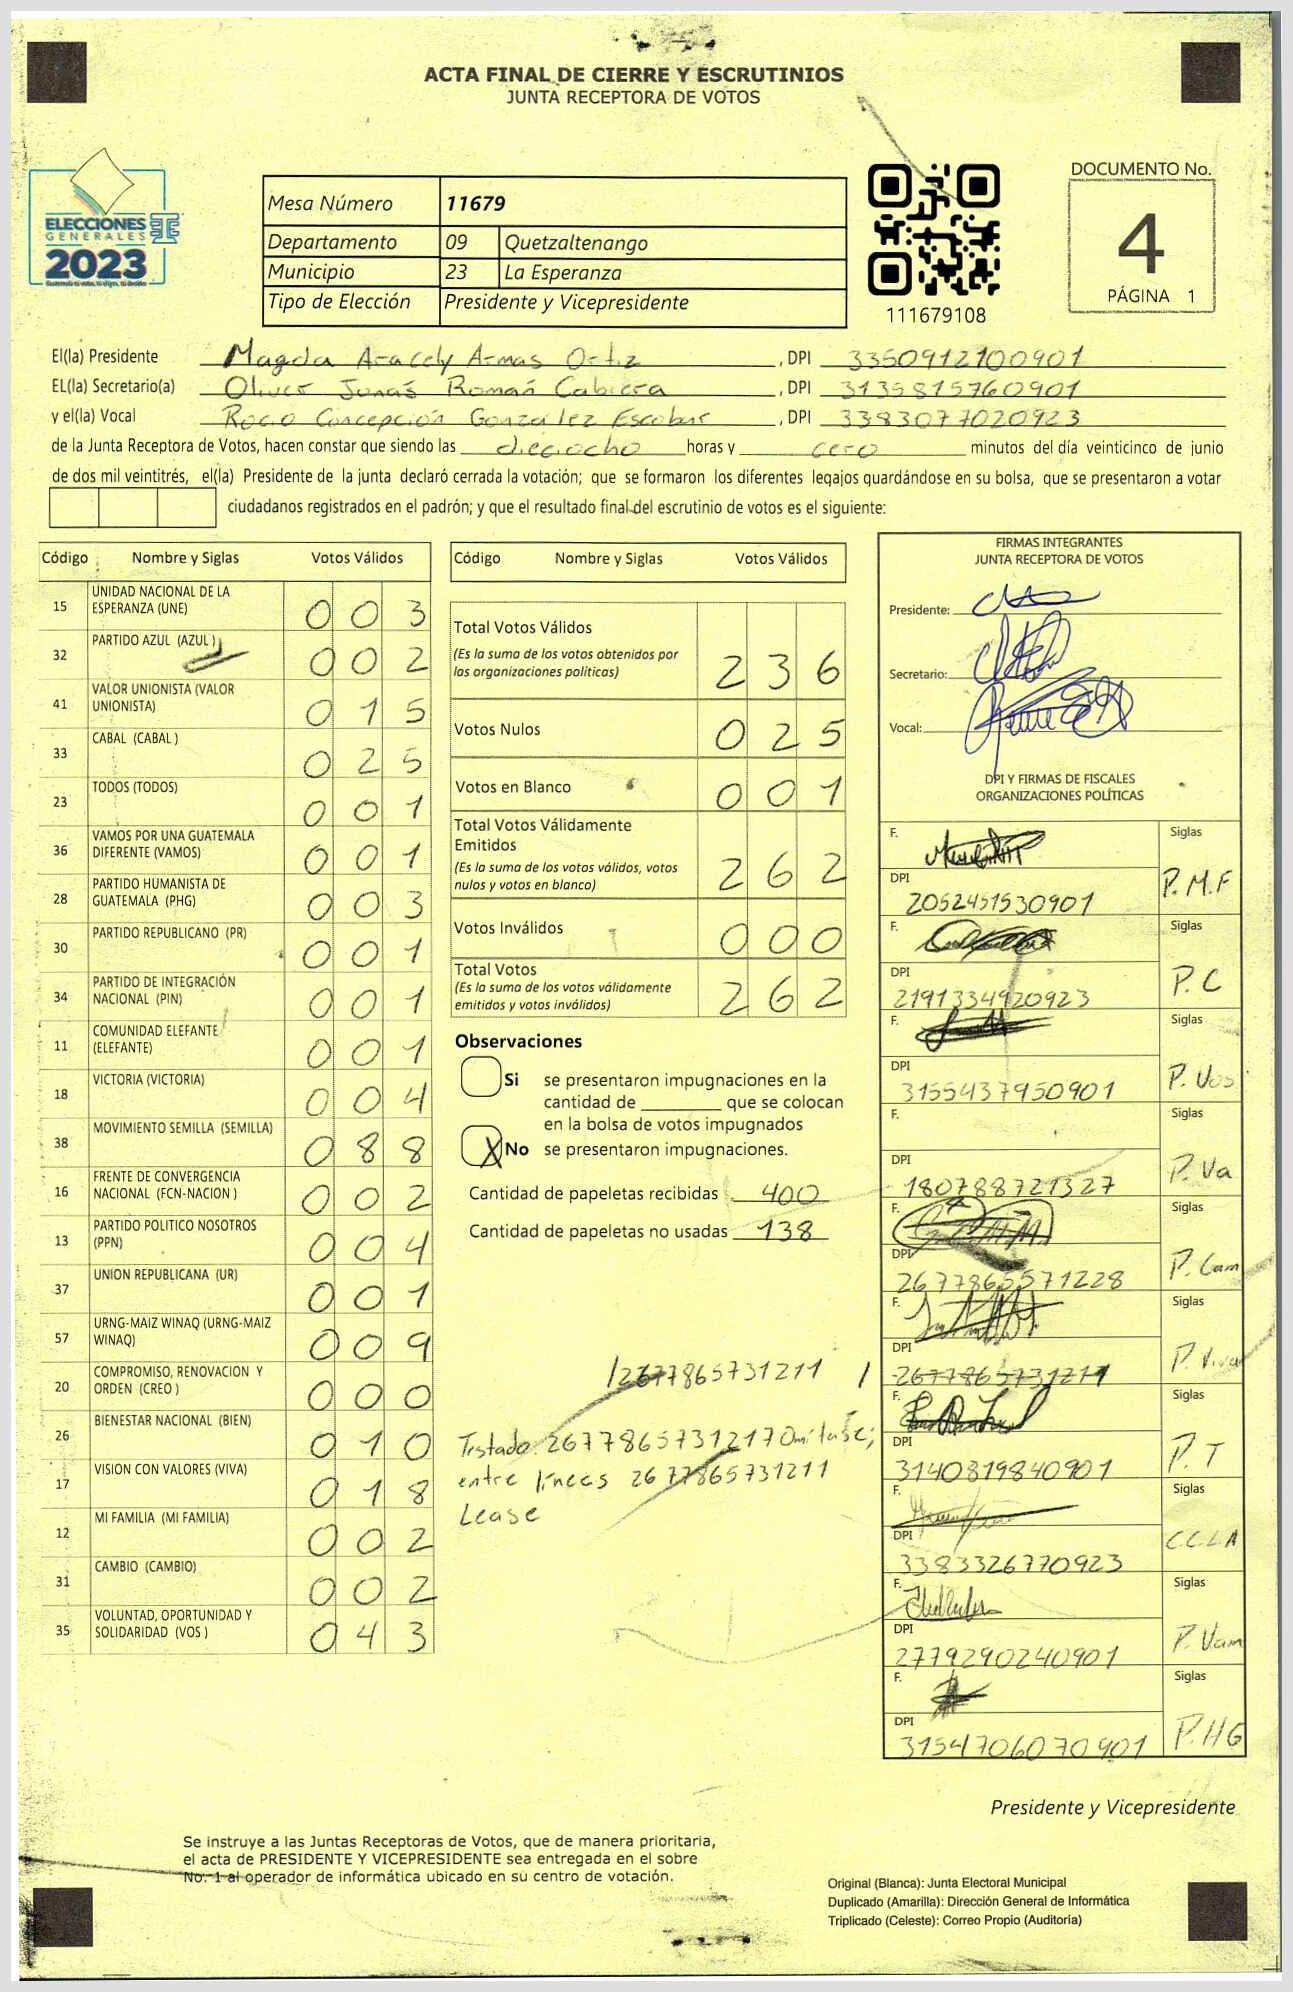 ACTA FINAL DE CIERRE Y ESCRUTINIOS
JUNTA RECEPTORA DE VOTOS
ELECCIONES
GENERALES
2023
Mesa Número 11679
Departamento 09 Quetzaltenango
Municipio 23 La Esperanza
Tipo de Elección Presidente y Vicepresidente
111679108
DOCUMENTO No.
4
PÁGINA 1
El(la) Presidente Magda Aracely Armas Ortiz , DPI 3350912100901
EL(la) Secretario(a) Oliver Jonás Román Cabrera , DPI 3135815760901
y el(la) Vocal Rocio Concepción González Escobar , DPI 3383077020923
de la Junta Receptora de Votos, hacen constar que siendo las dieciocho horas y cero minutos del día veinticinco de junio
de dos mil veintitrés, el(la) Presidente de la junta declaró cerrada la votación; que se formaron los diferentes legajos guardándose en su bolsa, que se presentaron a votar
ciudadanos registrados en el padrón; y que el resultado final del escrutinio de votos es el siguiente:
Código Nombre y Siglas Votos Válidos
15 UNIDAD NACIONAL DE LA ESPERANZA (UNE) 0 0 3
32 PARTIDO AZUL (AZUL) 0 0 2
41 VALOR UNIONISTA (VALOR UNIONISTA) 0 1 5
33 CABAL (CABAL ) 0 2 5
23 TODOS (TODOS) 0 0 1
36 VAMOS POR UNA GUATEMALA DIFERENTE (VAMOS) 0 0 1
28 PARTIDO HUMANISTA DE GUATEMALA (PHG) 0 0 3
30 PARTIDO REPUBLICANO (PR) 0 0 1
34 PARTIDO DE INTEGRACIÓN NACIONAL (PIN) 0 0 1
11 COMUNIDAD ELEFANTE (ELEFANTE) 0 0 1
18 VICTORIA (VICTORIA) 0 0 4
38 MOVIMIENTO SEMILLA (SEMILLA) 0 8 8
16 FRENTE DE CONVERGENCIA NACIONAL (FCN-NACION ) 0 0 2
13 PARTIDO POLITICO NOSOTROS (PPN) 0 0 4
37 UNION REPUBLICANA (UR) 0 0 1
57 URNG-MAIZ WINAQ (URNG-MAIZ WINAQ) 0 0 9
20 COMPROMISO, RENOVACION Y ORDEN (CREO ) 0 0 0
26 BIENESTAR NACIONAL (BIEN) 0 1 0
17 VISION CON VALORES (VIVA) 0 1 8
12 MI FAMILIA (MI FAMILIA) 0 0 2
31 CAMBIO (CAMBIO) 0 0 2
35 VOLUNTAD, OPORTUNIDAD Y SOLIDARIDAD (VOS ) 0 4 3
Código Nombre y Siglas Votos Válidos
Total Votos Válidos
(Es la suma de los votos obtenidos por
las organizaciones políticas) 2 3 6
Votos Nulos 0 2 5
Votos en Blanco 0 0 1
Total Votos Válidamente
Emitidos
(Es la suma de los votos válidos, votos
nulos y votos en blanco) 2 6 2
Votos Inválidos 0 0 0
Total Votos
(Es la suma de los votos válidamente
emitidos y votos inválidos) 2 6 2
Observaciones
Si se presentaron impugnaciones en la
cantidad de ________ que se colocan
en la bolsa de votos impugnados
X No se presentaron impugnaciones.
Cantidad de papeletas recibidas 400
Cantidad de papeletas no usadas 138
/2677865731211 /
Testado: 2677865731217 Omitase;
entre líneas 2677865731211
Lease
FIRMAS INTEGRANTES
JUNTA RECEPTORA DE VOTOS
Presidente:
Secretario:
Vocal:
DPI Y FIRMAS DE FISCALES
ORGANIZACIONES POLÍTICAS
F. Siglas
DPI 2052451530901 P.M.F
F. Siglas
DPI 2191334920923 P.C
F. Siglas
DPI 3155437950901 P. Vos
F. Siglas
DPI 180788721327 P. Va
F. Siglas
DPI 2677865571228 P. Cam
F. Siglas
DPI P. Viva
F. Siglas
DPI 3140819840901 P. T
F. Siglas
DPI 3383326770923 C.C.L.A
F. Siglas
DPI 2779290240901 P. Vam
F. Siglas
DPI 3154706070901 P.HG
Presidente y Vicepresidente
Se instruye a las Juntas Receptoras de Votos, que de manera prioritaria,
el acta de PRESIDENTE Y VICEPRESIDENTE sea entregada en el sobre
No. 1 al operador de informática ubicado en su centro de votación.
Original (Blanca): Junta Electoral Municipal
Duplicado (Amarilla): Dirección General de Informática
Triplicado (Celeste): Correo Propio (Auditoría)